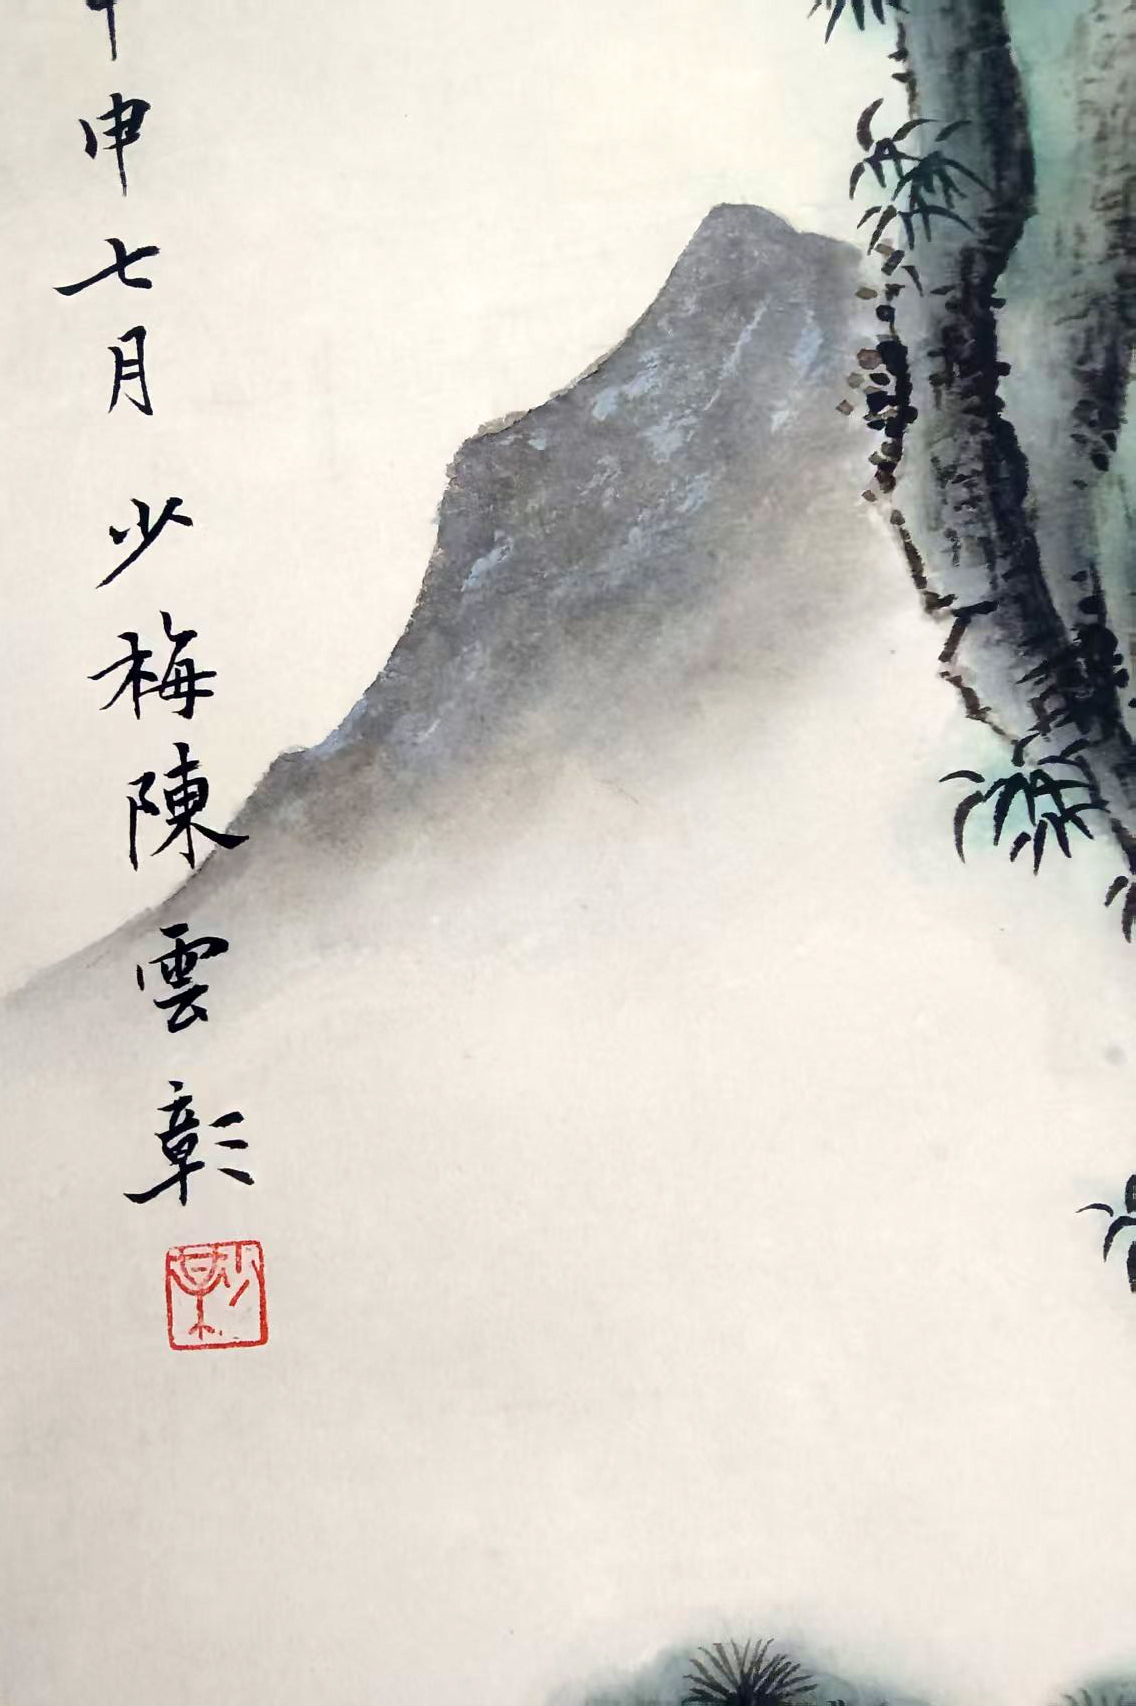 申七月少梅陳雲彰